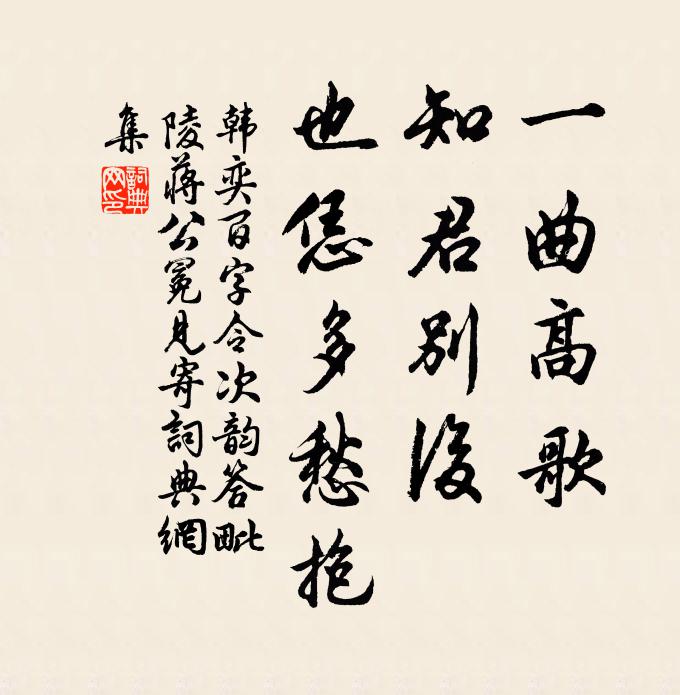 一曲高歌
知君别後
也恁多愁抱
韩奕百字令次韵答毗
陵蒋公冕見寄詞典網
集
詞典网印